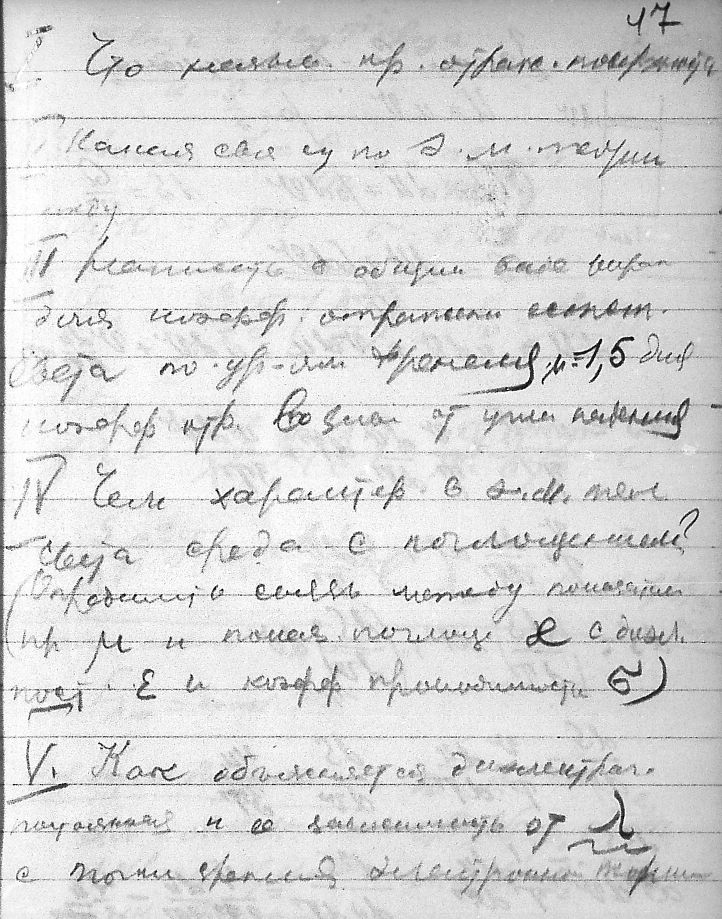 17
I Что назыв. пр. отраж. поверхность
II Какая связь по э. м. теории
между
III Написать в общем виде выра
для коэфф. отражения естест.
света по ур-ям Френеля, μ=1,5 для
коэфф отр от угла падения
IV Чем характер. в э. м. теор
света среда с поглощением?
(Определить связь между показателем
пр μ и показ. поглощ æ с диэл.
пост. ε и коэфф проводимости σ)
V. Как объясняется диэлектрич.
постоянная и её зависимость от λ
с точки зрения электронной теории